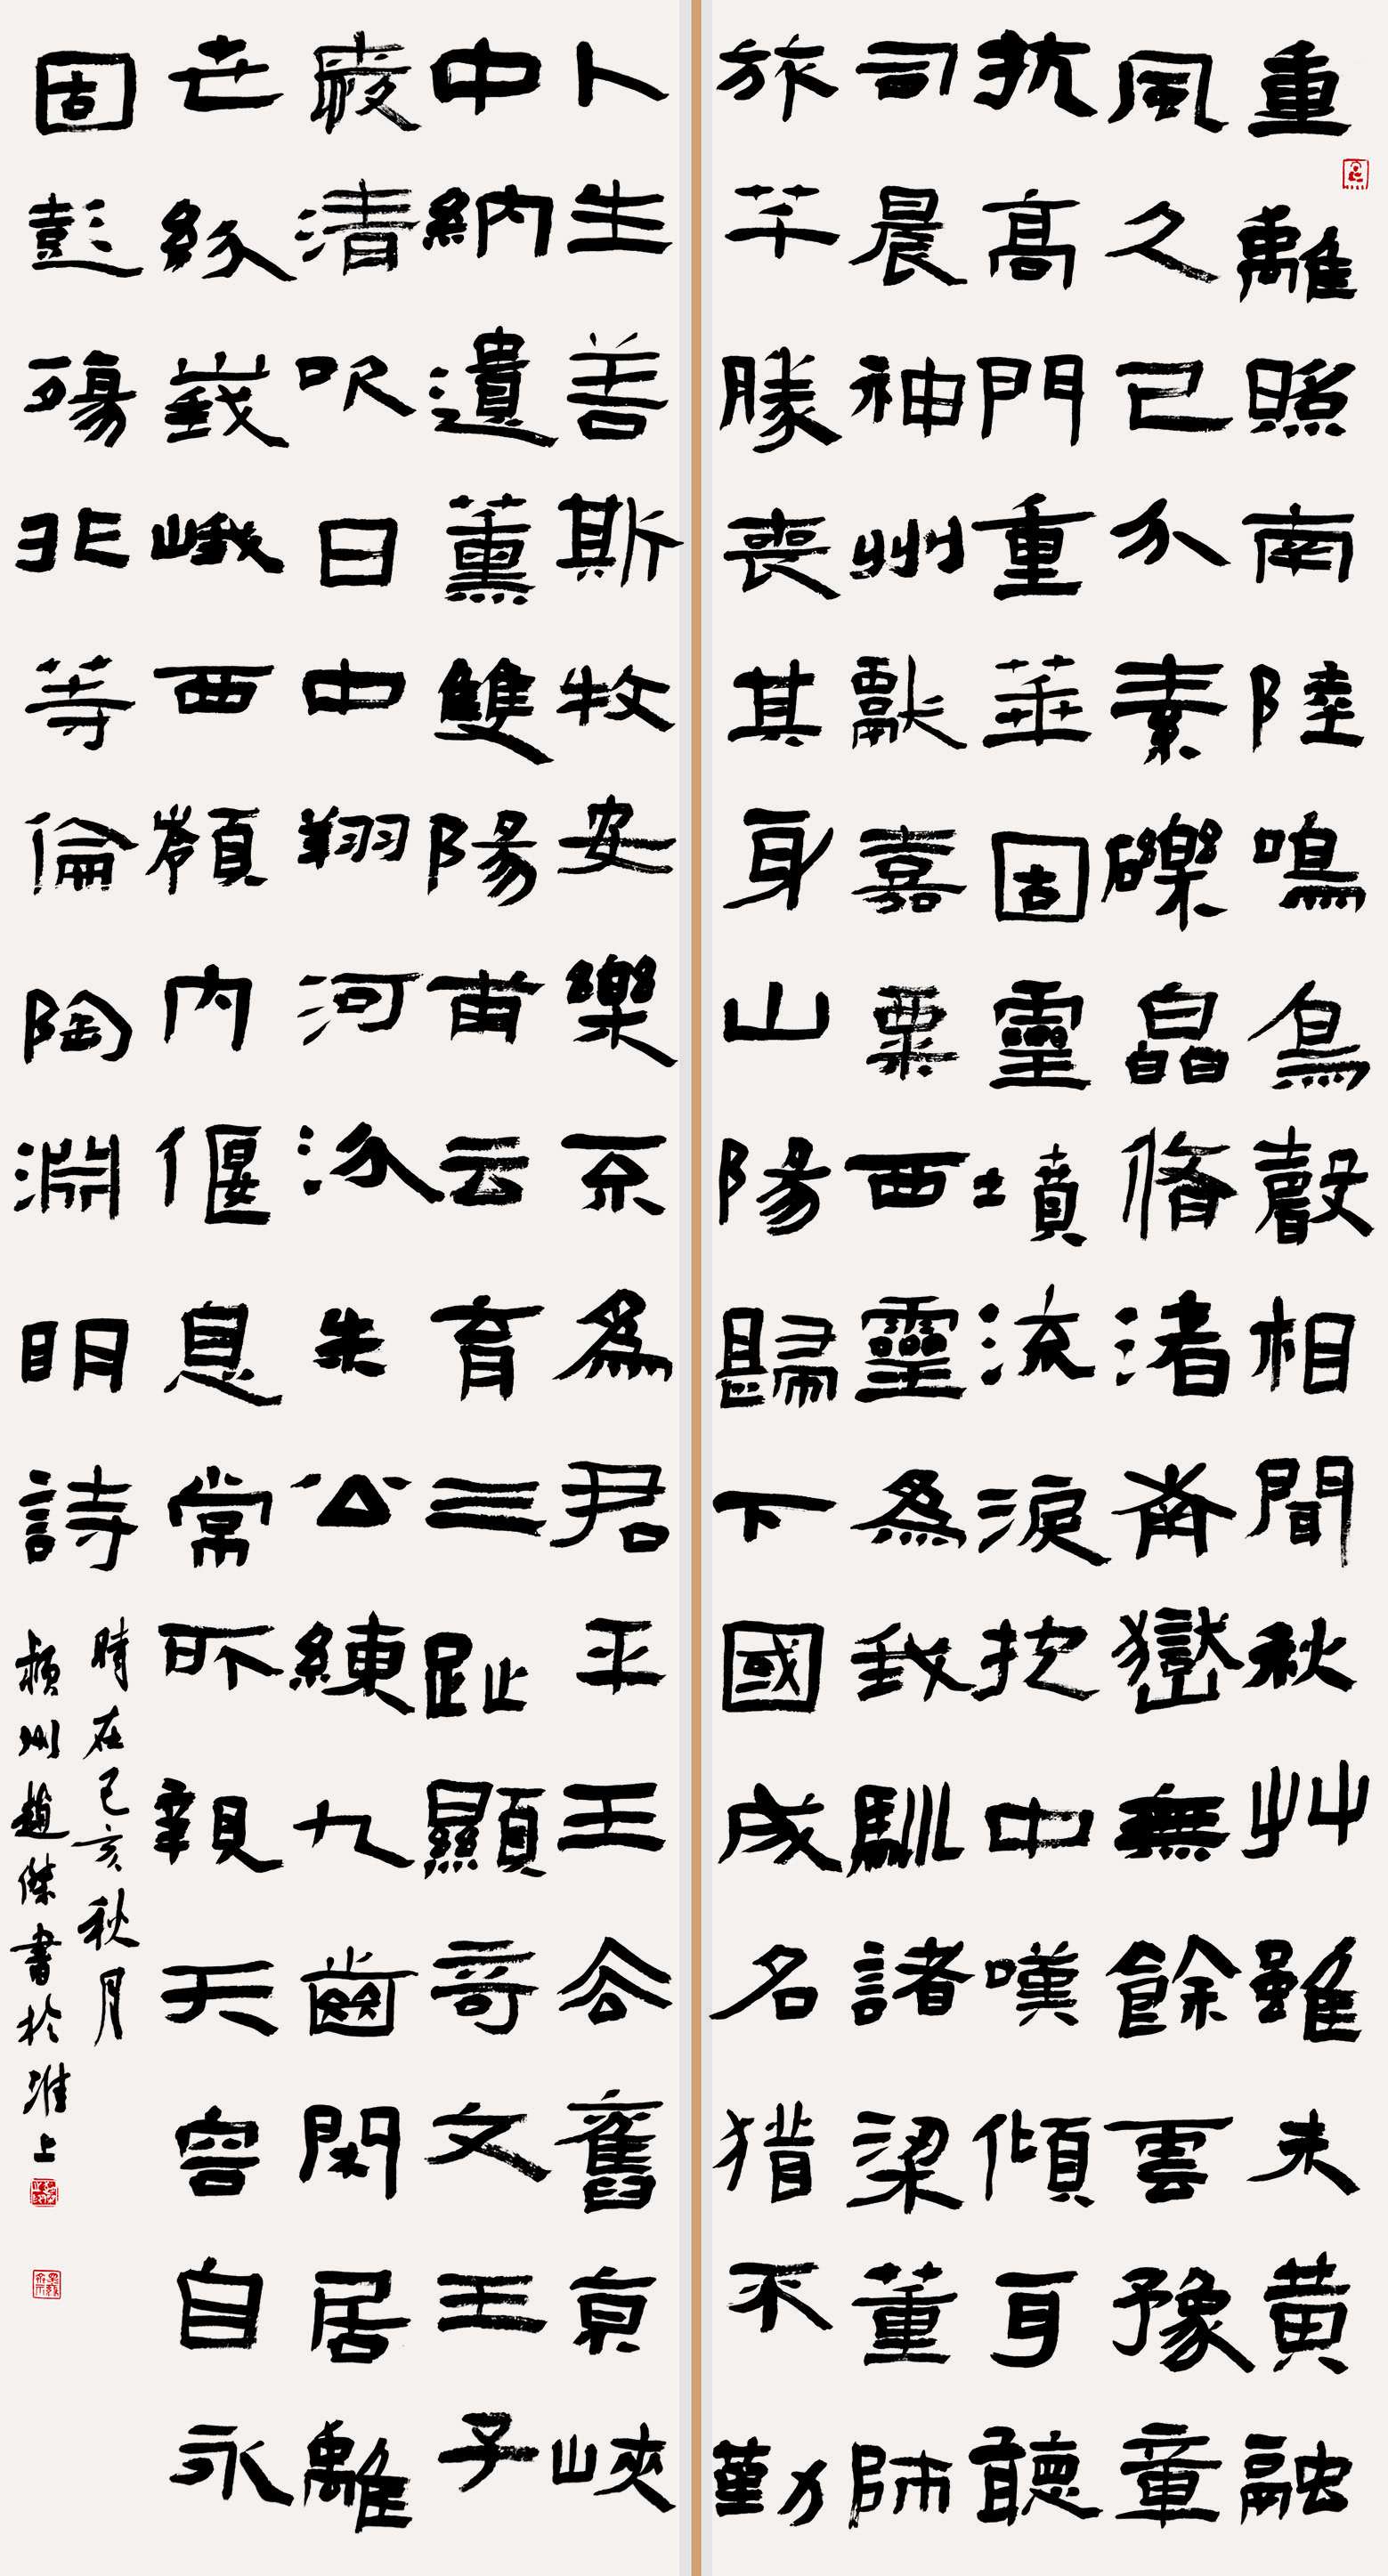 重離照南陸鳴鳥聲相聞秋艸雖未黃融
風久已分素礫皛脩渚南嶽無餘雲豫章
抗高門重華固靈墳流淚抱中嘆傾耳聽
司晨神州獻嘉粟西靈為我馴諸梁董師
旅芊勝喪其身山陽歸下國成名猶不勤
卜生善斯牧安樂不為君平王去舊京峽
中納遺薰雙陽甫云育三趾顯奇文王子
愛清吹日中翔河汾朱公練九齒閑居離
世紛峩峨西嶺內偃息常所親天容自永
固彭殤非等倫陶淵明詩
時在己亥秋月
潁州趙傑書於淮上